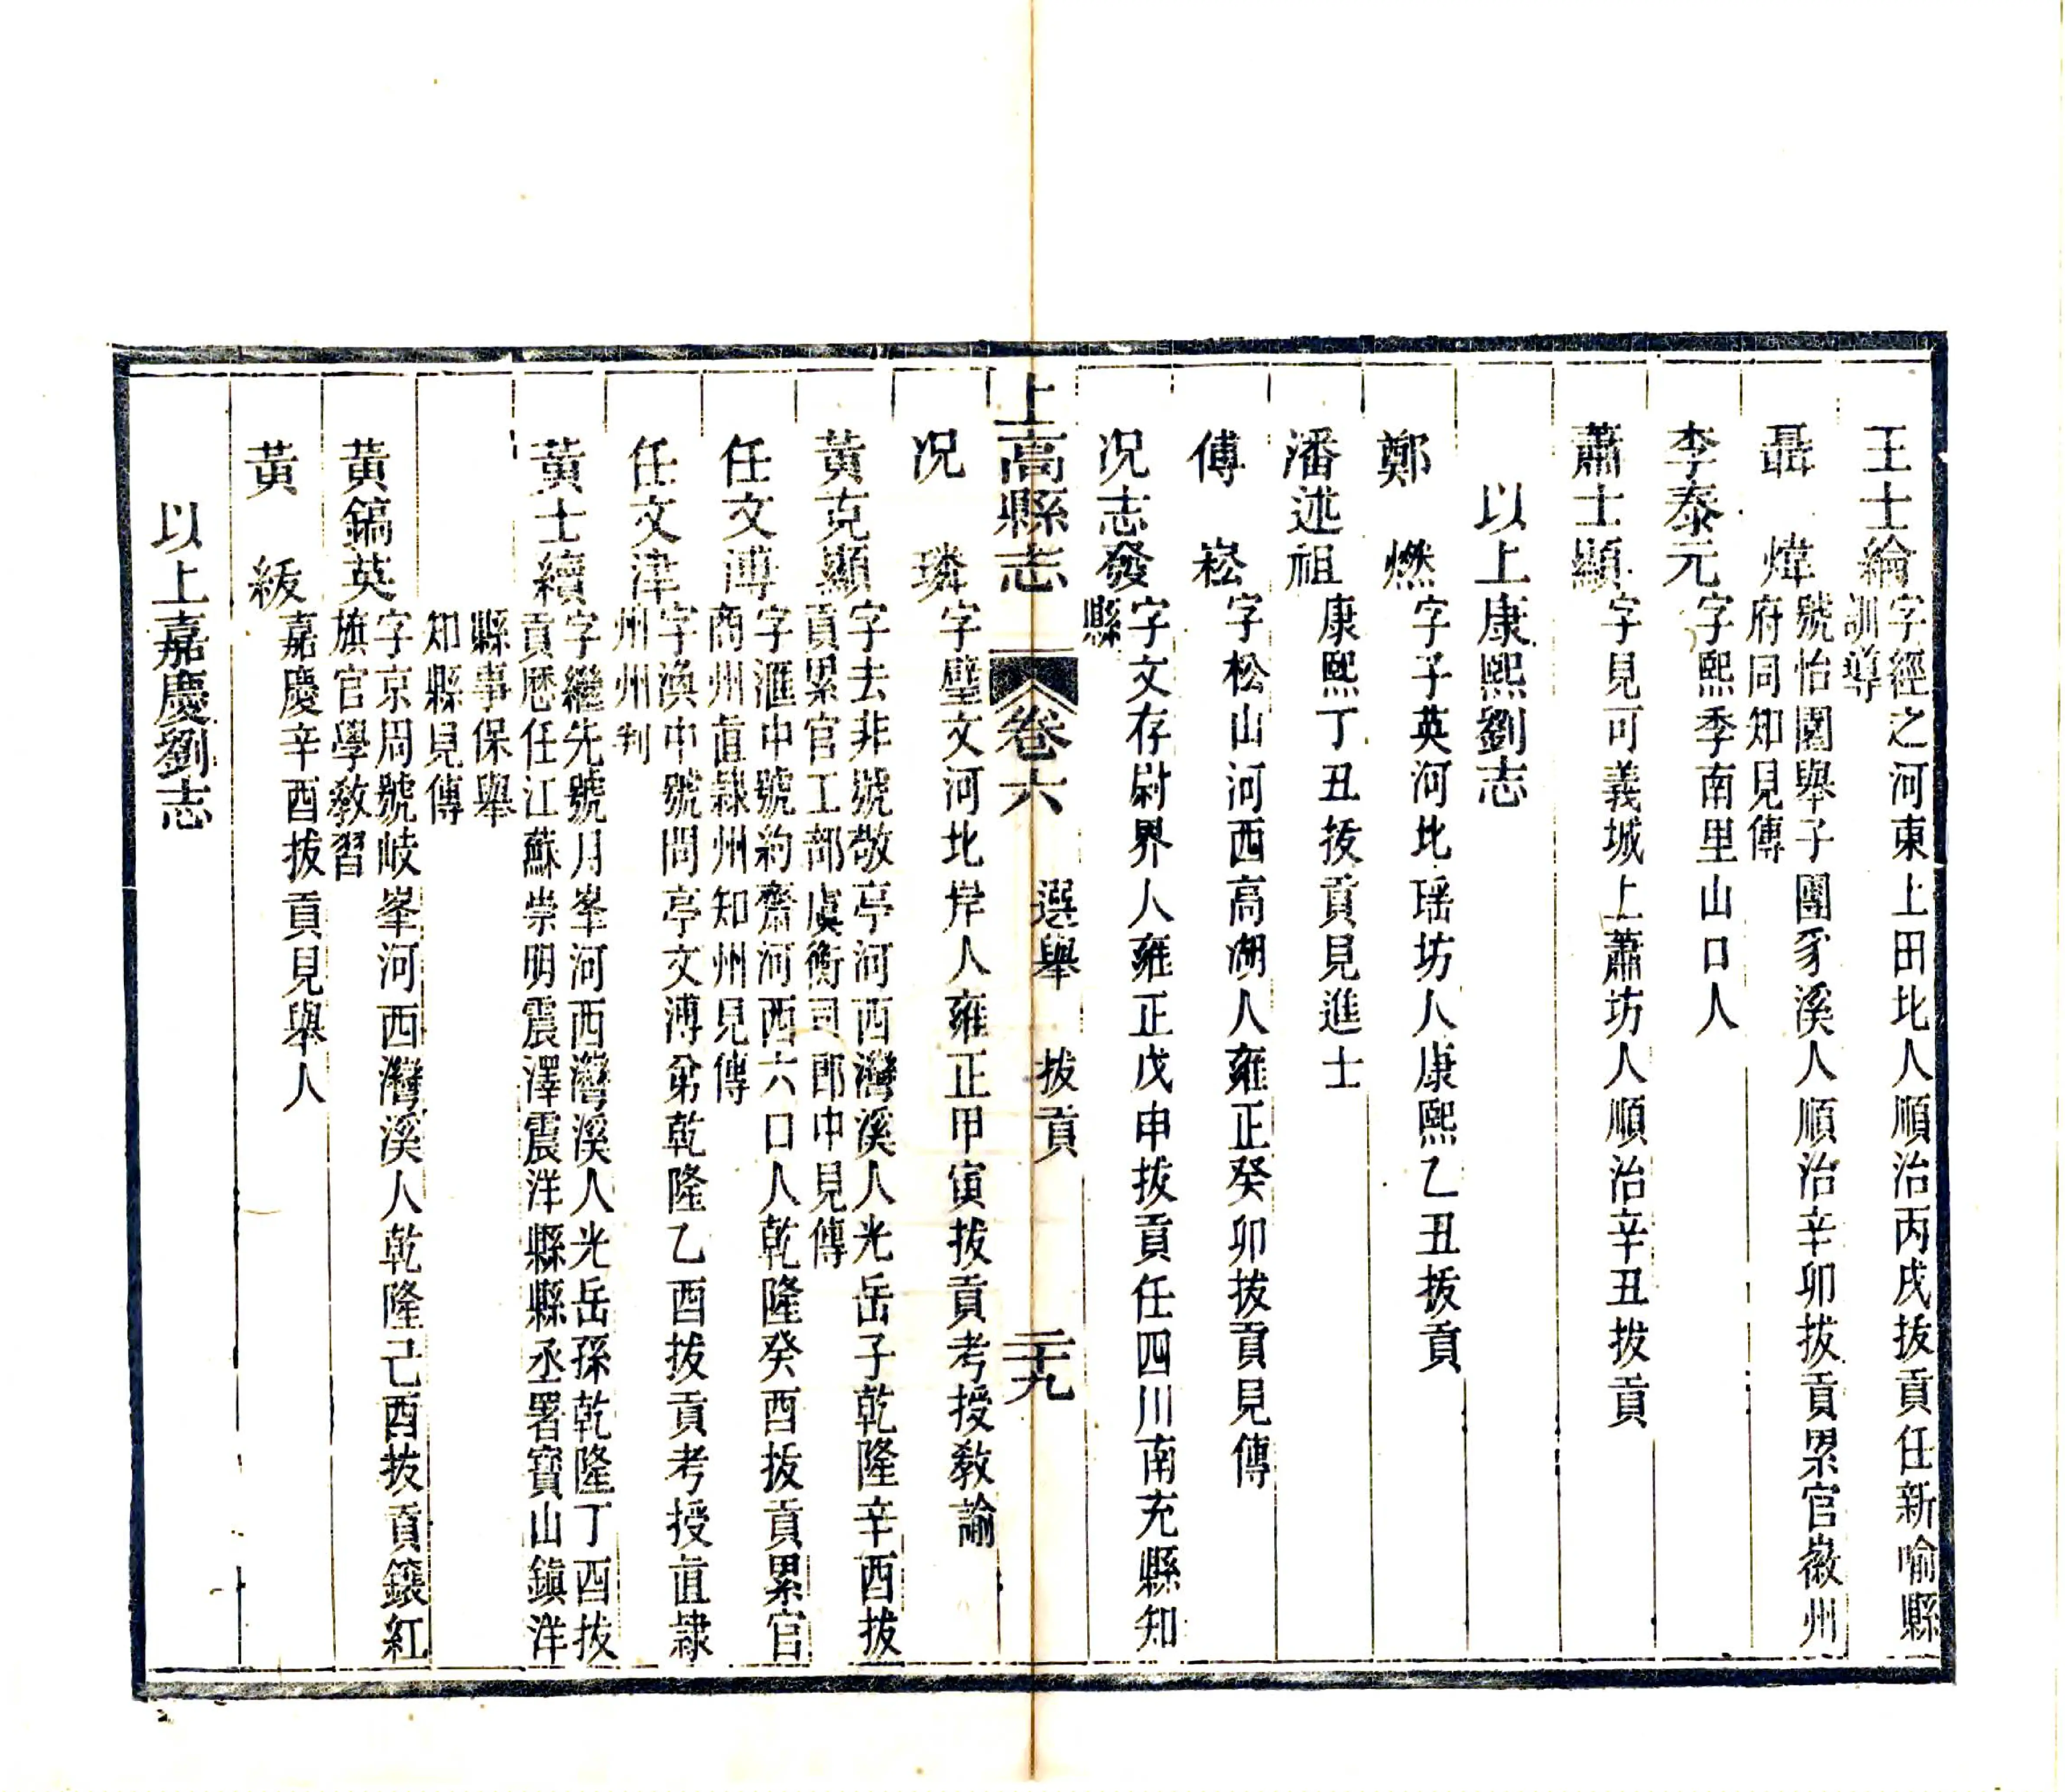 王士綸字經之河東上田北人順治丙戌拔貢任新喻縣
訓導
聶煒號怡園舉子團豸溪人順治辛卯拔貢累官徽州
府同知見傳
李泰元字熙季南里山口人
蕭士顯字見可義城上蕭坊人順治辛丑拔貢
以上康熙劉志
鄭燃字子英河北瑶坊人康熙乙丑拔貢
潘述祖康熙丁丑拔貢見進士
傅崧字松山河西高湖人雍正癸卯拔貢見傳
况志發字文存尉界人雍正戊申拔貢任四川南充縣知
縣
上高縣志 卷六 選舉 拔貢 二十九
况璘字璧文河北岸人雍正甲寅拔貢考授教諭
黃克顯字去非號敬亭河西灣溪人光岳子乾隆辛酉拔
貢累官工部虞衡司郎中見傳
任文溥字滙中號約齋河西六口人乾隆癸酉拔貢累官
商州直隸州知州見傳
任文津字渙中號問亭文溥弟乾隆乙酉拔貢考授直隸
州州判
黃士續字繼先號月峯河西灣溪人光岳孫乾隆丁酉拔
貢歷任江蘇崇明震澤震洋縣縣丞署寶山鎮洋
縣事保舉
知縣見傳
黃鎬英字京周號岐峯河西灣溪人乾隆己酉拔貢鑲紅
旗官學教習
黃紱嘉慶辛酉拔貢見舉人
以上嘉慶劉志